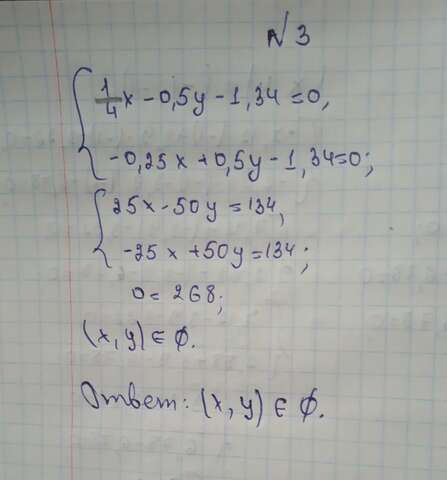 N 3
1/4x - 0,5y - 1,34 = 0,
-0,25x + 0,5y - 1,34 = 0;
25x - 50y = 134,
-25x + 50y = 134;
0 = 268;
(x, y) ∈ ∅.
Ответ: (x, y) ∈ ∅.